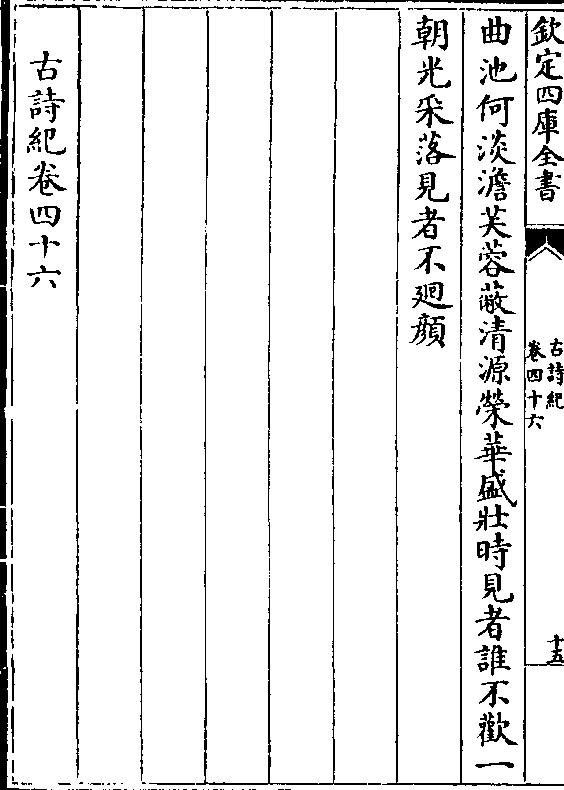 欽定四庫全書
古詩紀
卷四十六
十五
曲池何淡澹芙蓉蔽清源榮華盛壯時見者誰不歡一
朝光采落見者不廻顔
古詩紀卷四十六